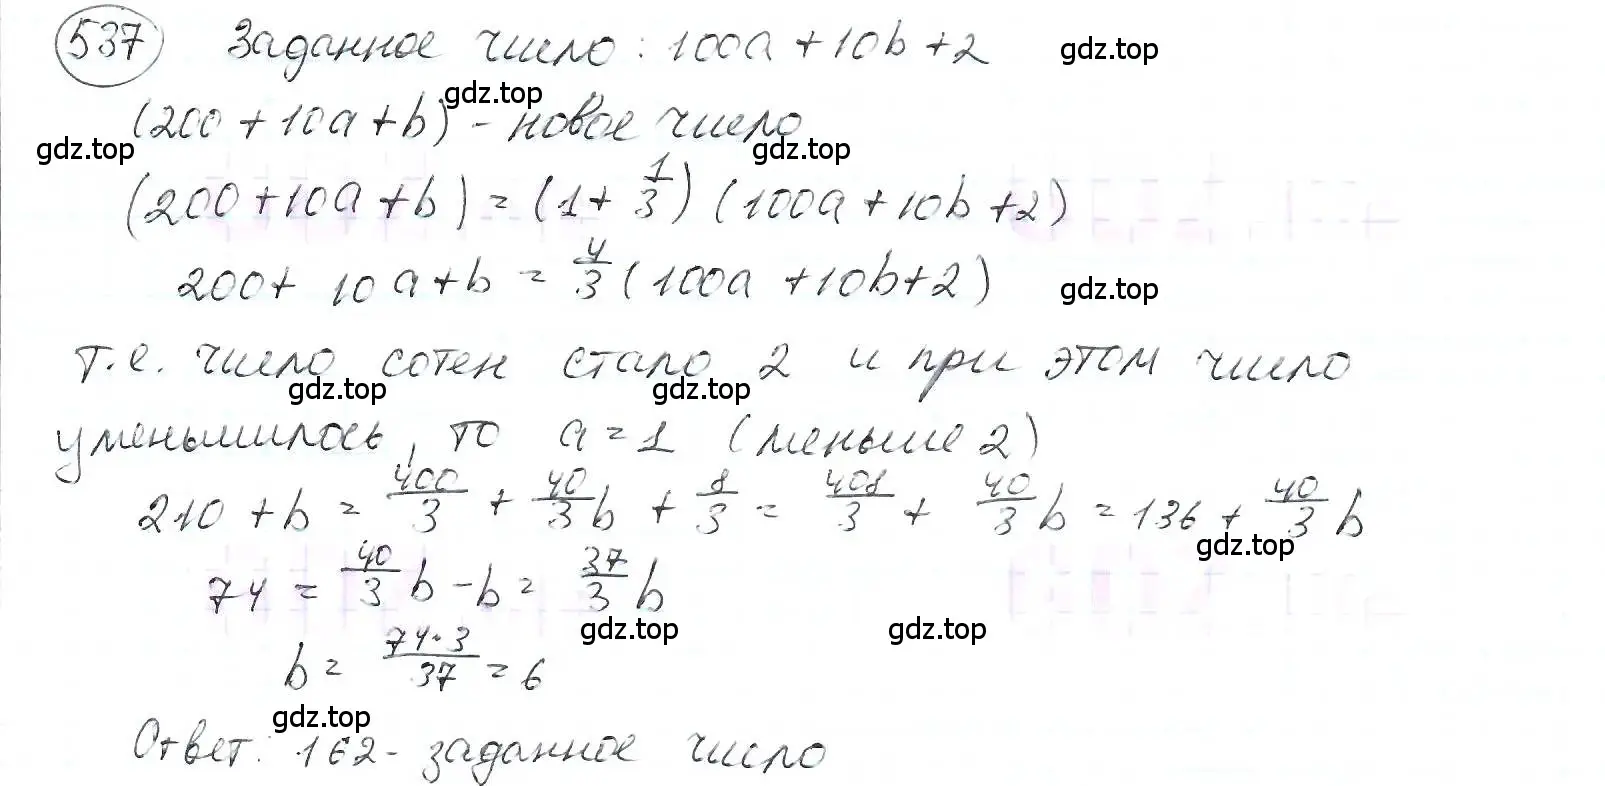 537 Заданное число: 100a + 10b + 2 gdz.top
gdz.top
(200 + 10a + b) - новое число
gdz.top gdz.top
(200 + 10a + b) = (1 + 1/3) (100a + 10b + 2)
200 + 10a + b = 4/3 (100a + 10b + 2) gdz.top
т.е. число сотен стало 2 и при этом число
gdz.top gdz.top
уменьшилось, то a = 1 (меньше 2)
210 + b = 400/3 + 40/3 b + 8/3 = 408/3 + 40/3 b = 136 + 40/3 b
gdz.top
74 = 40/3 b - b = 37/3 b
gdz.top gdz.top
b = 74·3/37 = 6
gdz.top
Ответ: 162 - заданное число